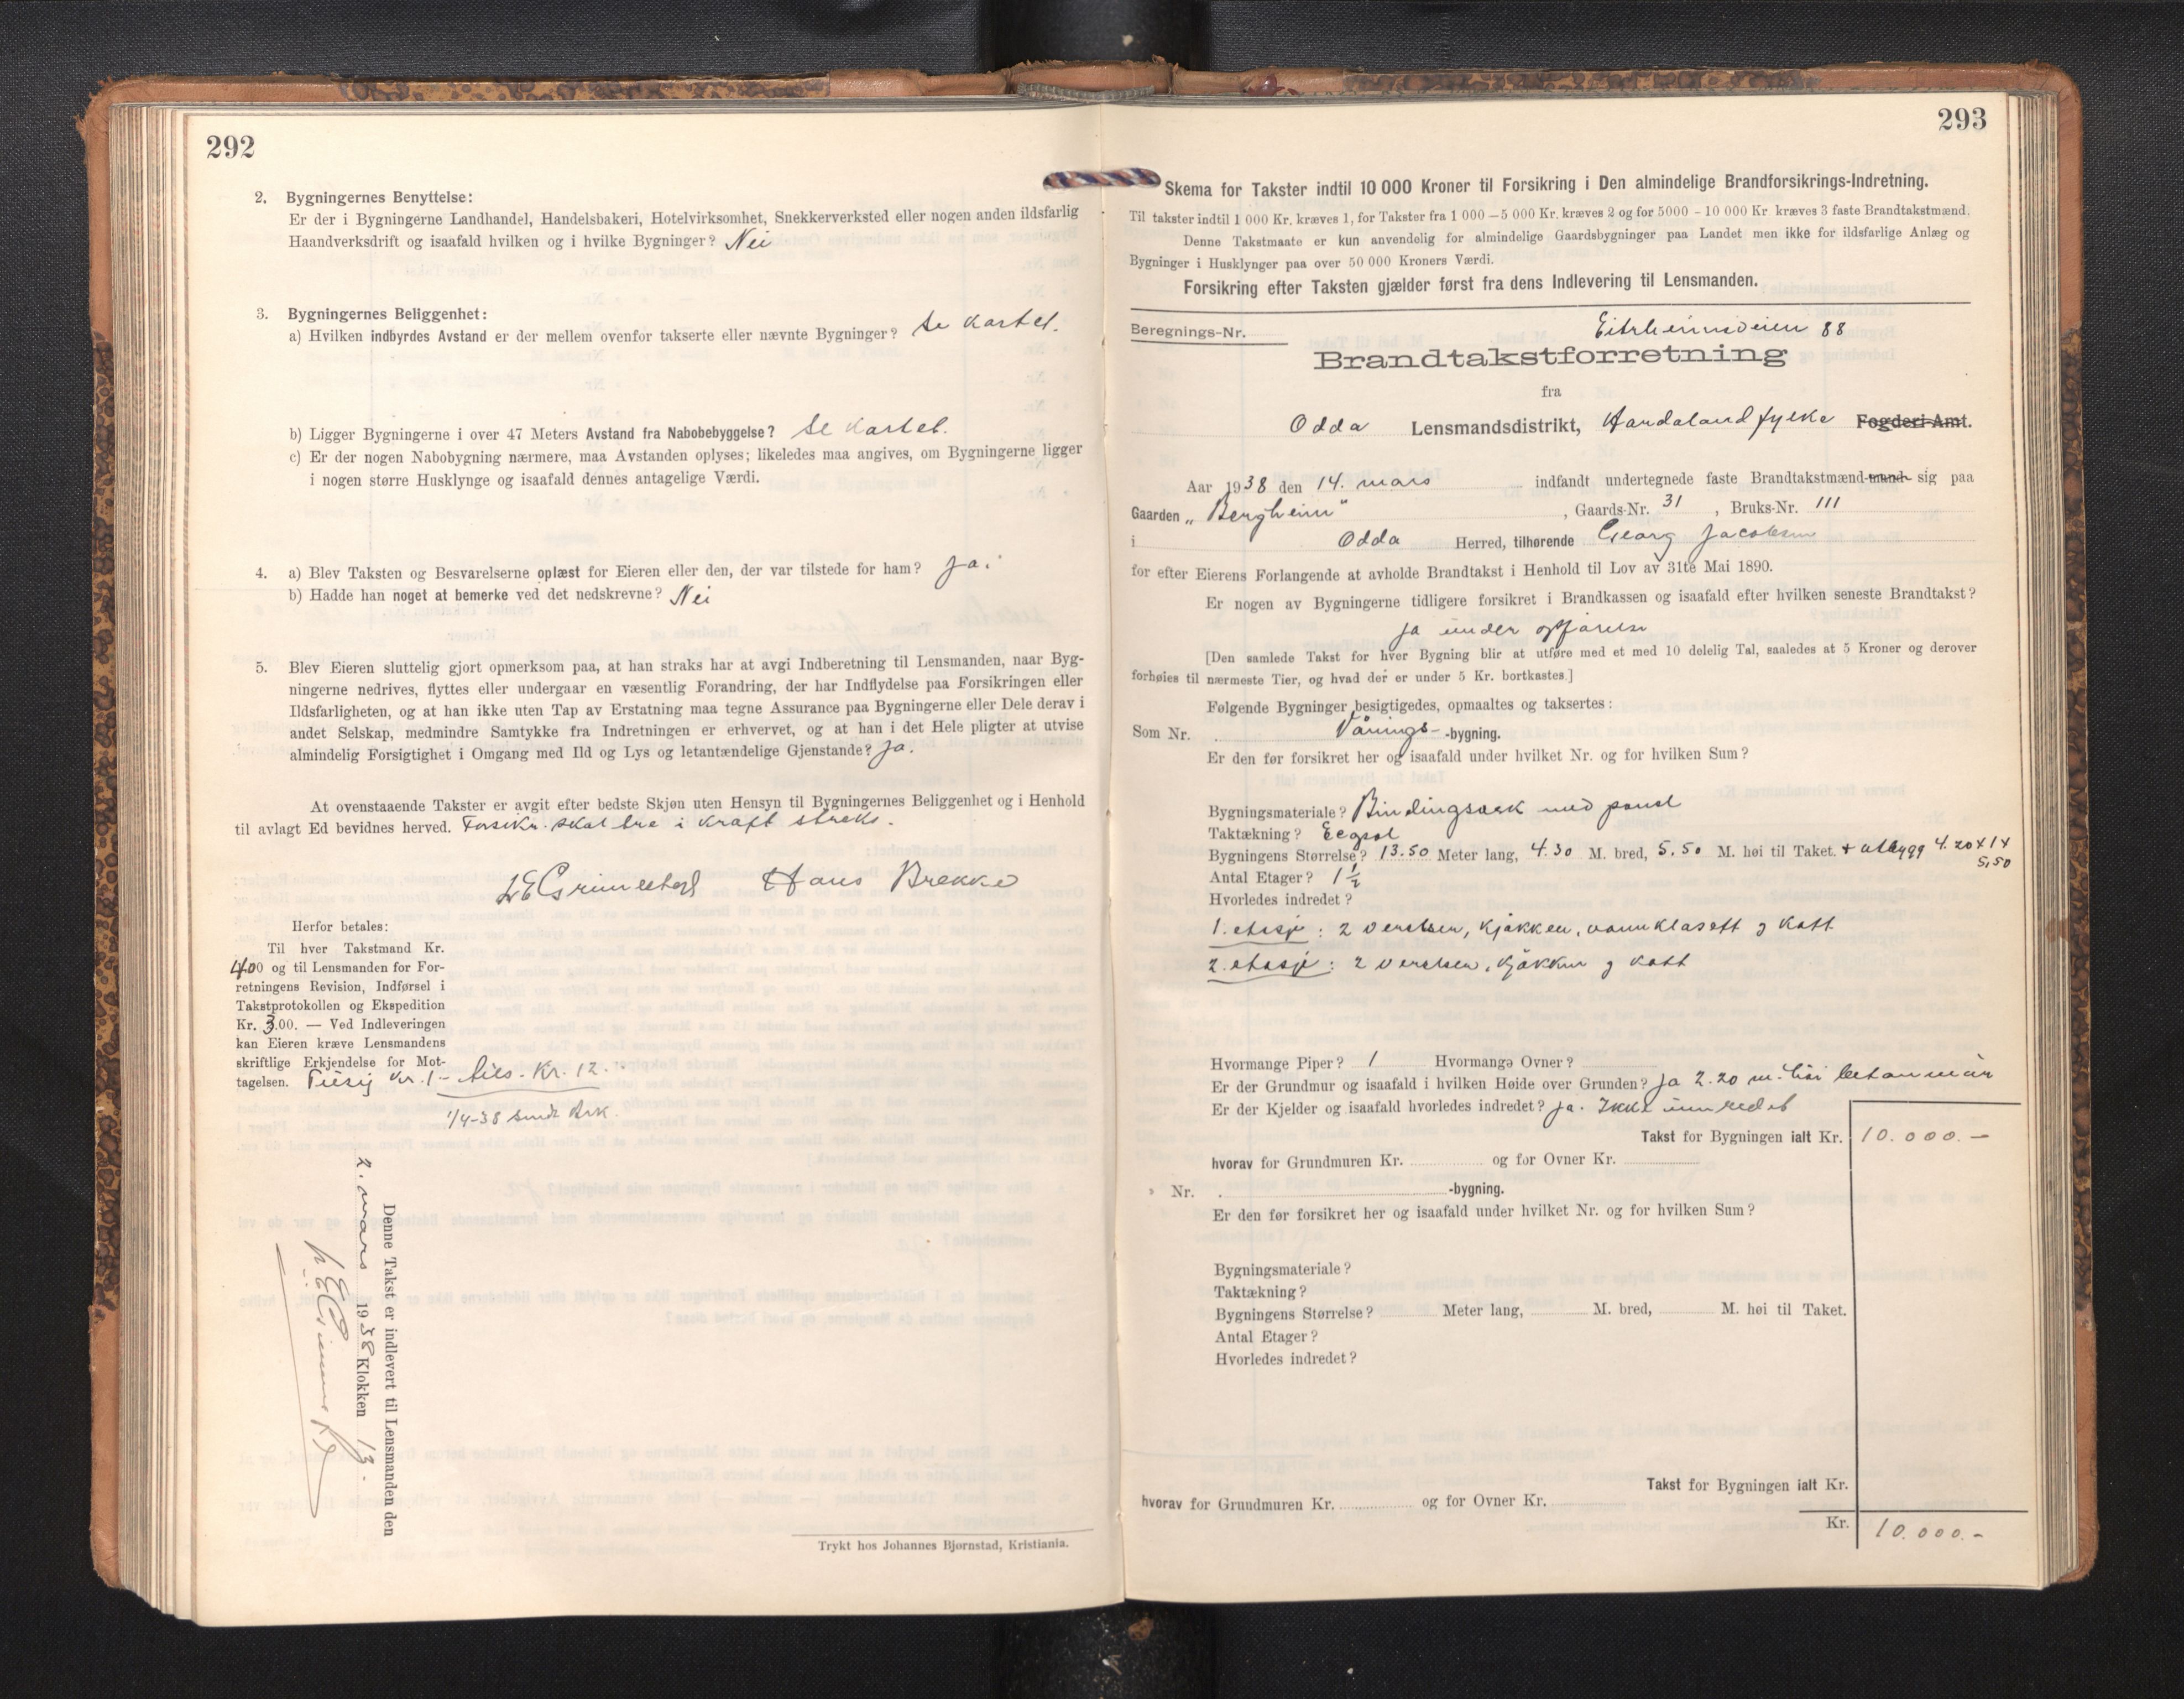 292
2. Bygningernes Benyttelse:
Er der i Bygningerne Landhandel, Handelsbakeri, Hotelvirksomhet, Snekkerverksted eller nogen anden ildsfarlig
Haandverksdrift og isaafald hvilken og i hvilke Bygninger? Nei
3. Bygningernes Beliggenhet:
a) Hvilken indbyrdes Avstand er der mellem ovenfor takserte eller nævnte Bygninger? Se kartet.
b) Ligger Bygningerne i over 47 Meters Avstand fra Nabobebyggelse? Se kartet.
c) Er der nogen Nabobygning nærmere, maa Avstanden oplyses; likeledes maa angives, om Bygningerne ligger
i nogen større Husklynge og isaafald dennes antagelige Værdi.
4. a) Blev Taksten og Besvarelserne oplæst for Eieren eller den, der var tilstede for ham? Ja.
b) Hadde han noget at bemerke ved det nedskrevne? Nei
5. Blev Eieren sluttelig gjort opmerksom paa, at han straks har at avgi Indberetning til Lensmanden, naar Byg-
ningerne nedrives, flyttes eller undergaar en væsentlig Forandring, der har Indflydelse paa Forsikringen eller
Ildsfarligheten, og at han ikke uten Tap av Erstatning maa tegne Assurance paa Bygningerne eller Dele derav i
andet Selskap, medmindre Samtykke fra Indretningen er erhvervet, og at han i det Hele pligter at utvise
almindelig Forsigtighet i Omgang med Ild og Lys og letantændelige Gjenstande? Ja.
At ovenstaaende Takster er avgit efter bedste Skjøn uten Hensyn til Bygningernes Beliggenhet og i Henhold
til avlagt Ed bevidnes herved. Forsikr. skal tre i kraft straks.
Hans Brekke
Herfor betales:
Til hver Takstmand Kr.
4.00 og til Lensmanden for For-
retningens Revision, Indførsel i
Takstprotokollen og Ekspedition
Kr. 3.00. — Ved Indleveringen
kan Eieren kræve Lensmandens
skriftlige Erkjendelse for Mot-
tagelsen. kr. 1.- Tils. Kr. 12.-
1/4-38 sendt Brk.
Denne Takst er indlevert til Lensmanden den
2. mars 1938 Klokken 13.
Trykt hos Johannes Bjørnstad, Kristiania.
293
Skema for Takster indtil 10 000 Kroner til Forsikring i Den almindelige Brandforsikrings-Indretning.
Til takster indtil 1 000 Kr. kræves 1, for Takster fra 1 000 – 5 000 Kr. kræves 2 og for 5000 - 10 000 Kr kræves 3 faste Brandtakstmænd.
Denne Takstmaate er kun anvendelig for almindelige Gaardsbygninger paa Landet men ikke for ildsfarlige Anlæg og
Bygninger i Husklynger paa over 50 000 Kroners Værdi.
Forsikring efter Taksten gjælder først fra dens Indlevering til Lensmanden.
Beregnings-Nr. Eitrheimsveien 88
Brandtakstforretning
fra
Odda Lensmandsdistrikt, Hordaland fylke Fogderi Amt.
Aar 1938 den 14. mars indfandt undertegnede faste Brandtakstmænd-mand sig paa
Gaarden „Bergheim“, Gaards-Nr. 31, Bruks-Nr. 111
i Odda Herred, tilhørende Georg Jacobsen
for efter Eierens Forlangende at avholde Brandtakst i Henhold til Lov av 31te Mai 1890.
Er nogen av Bygningerne tidligere forsikret i Brandkassen og isaafald efter hvilken seneste Brandtakst?
Ja under opførelse
[Den samlede Takst for hver Bygning blir at utføre med et med 10 delelig Tal, saaledes at 5 Kroner og derover
forhøies til nærmeste Tier, og hvad der er under 5 Kr. bortkastes.]
Følgende Bygninger besigtigedes, opmaaltes og taksertes:
Som Nr. . Vånings- -bygning.
Er den før forsikret her og isaafald under hvilket Nr. og for hvilken Sum?
Bygningsmateriale? Bindingsverk med panel
Taktækning?
Bygningens Størrelse? 13.50 Meter lang, 4.30 M. bred, 5.50 M. høi til Taket. + utbygg 4.20 x 14
5,50
Antal Etager? 1 1/2
Hvorledes indredet?
1. etasje: 2 verelser, kjøkken, vannklosett og kott
2. etasje: 2 verelser, kjøkken og kott
Hvormange Piper? 1 Hvormange Ovner?
Er der Grundmur og isaafald i hvilken Høide over Grunden? Ja 2.20 m. høi betonmur
Er der Kjelder og isaafald hvorledes indredet? Ja. Ikke innredet
Takst for Bygningen ialt Kr. 10.000.-
hvorav for Grundmuren Kr. og for Ovner Kr.
» Nr. . -bygning.
Er den før forsikret her og isaafald under hvilket Nr. og for hvilken Sum?
Bygningsmateriale?
Taktækning?
Bygningens Størrelse? Meter lang, M. bred, M. høi til Taket.
Antal Etager?
Hvorledes indredet?
Takst for Bygningen ialt Kr.
hvorav for Grundmuren Kr. og for Ovner Kr.
Kr. 10.000.-